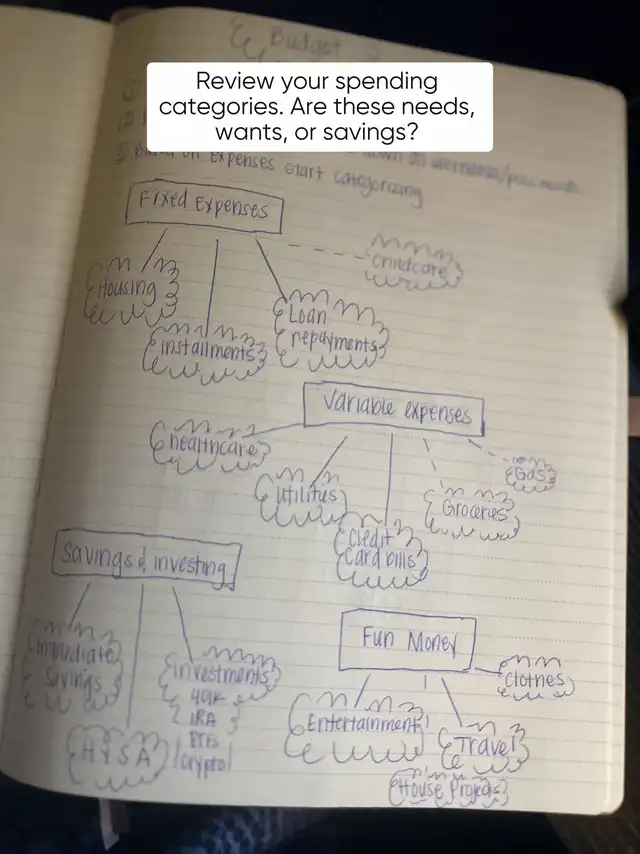 Budget
Review your spending
categories. Are these needs,
wants, or savings?
③ Based on expenses start categorizing
Fixed Expenses
Childcare
Housing
Installments
Loan
repayments
Variable expenses
healthcare
Gas
Utilities
Groceries
Credit
Card bills
Savings & investing
Fun Money
Immediate
Savings
Investments
401K
IRA
ETFs
Crypto
HYSA
Clothes
Entertainment
Travel
House Projects